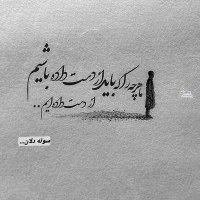 ما هرچه را که باید از دست داده باشیم
از دست داده‌ایم..
سوته دلان...